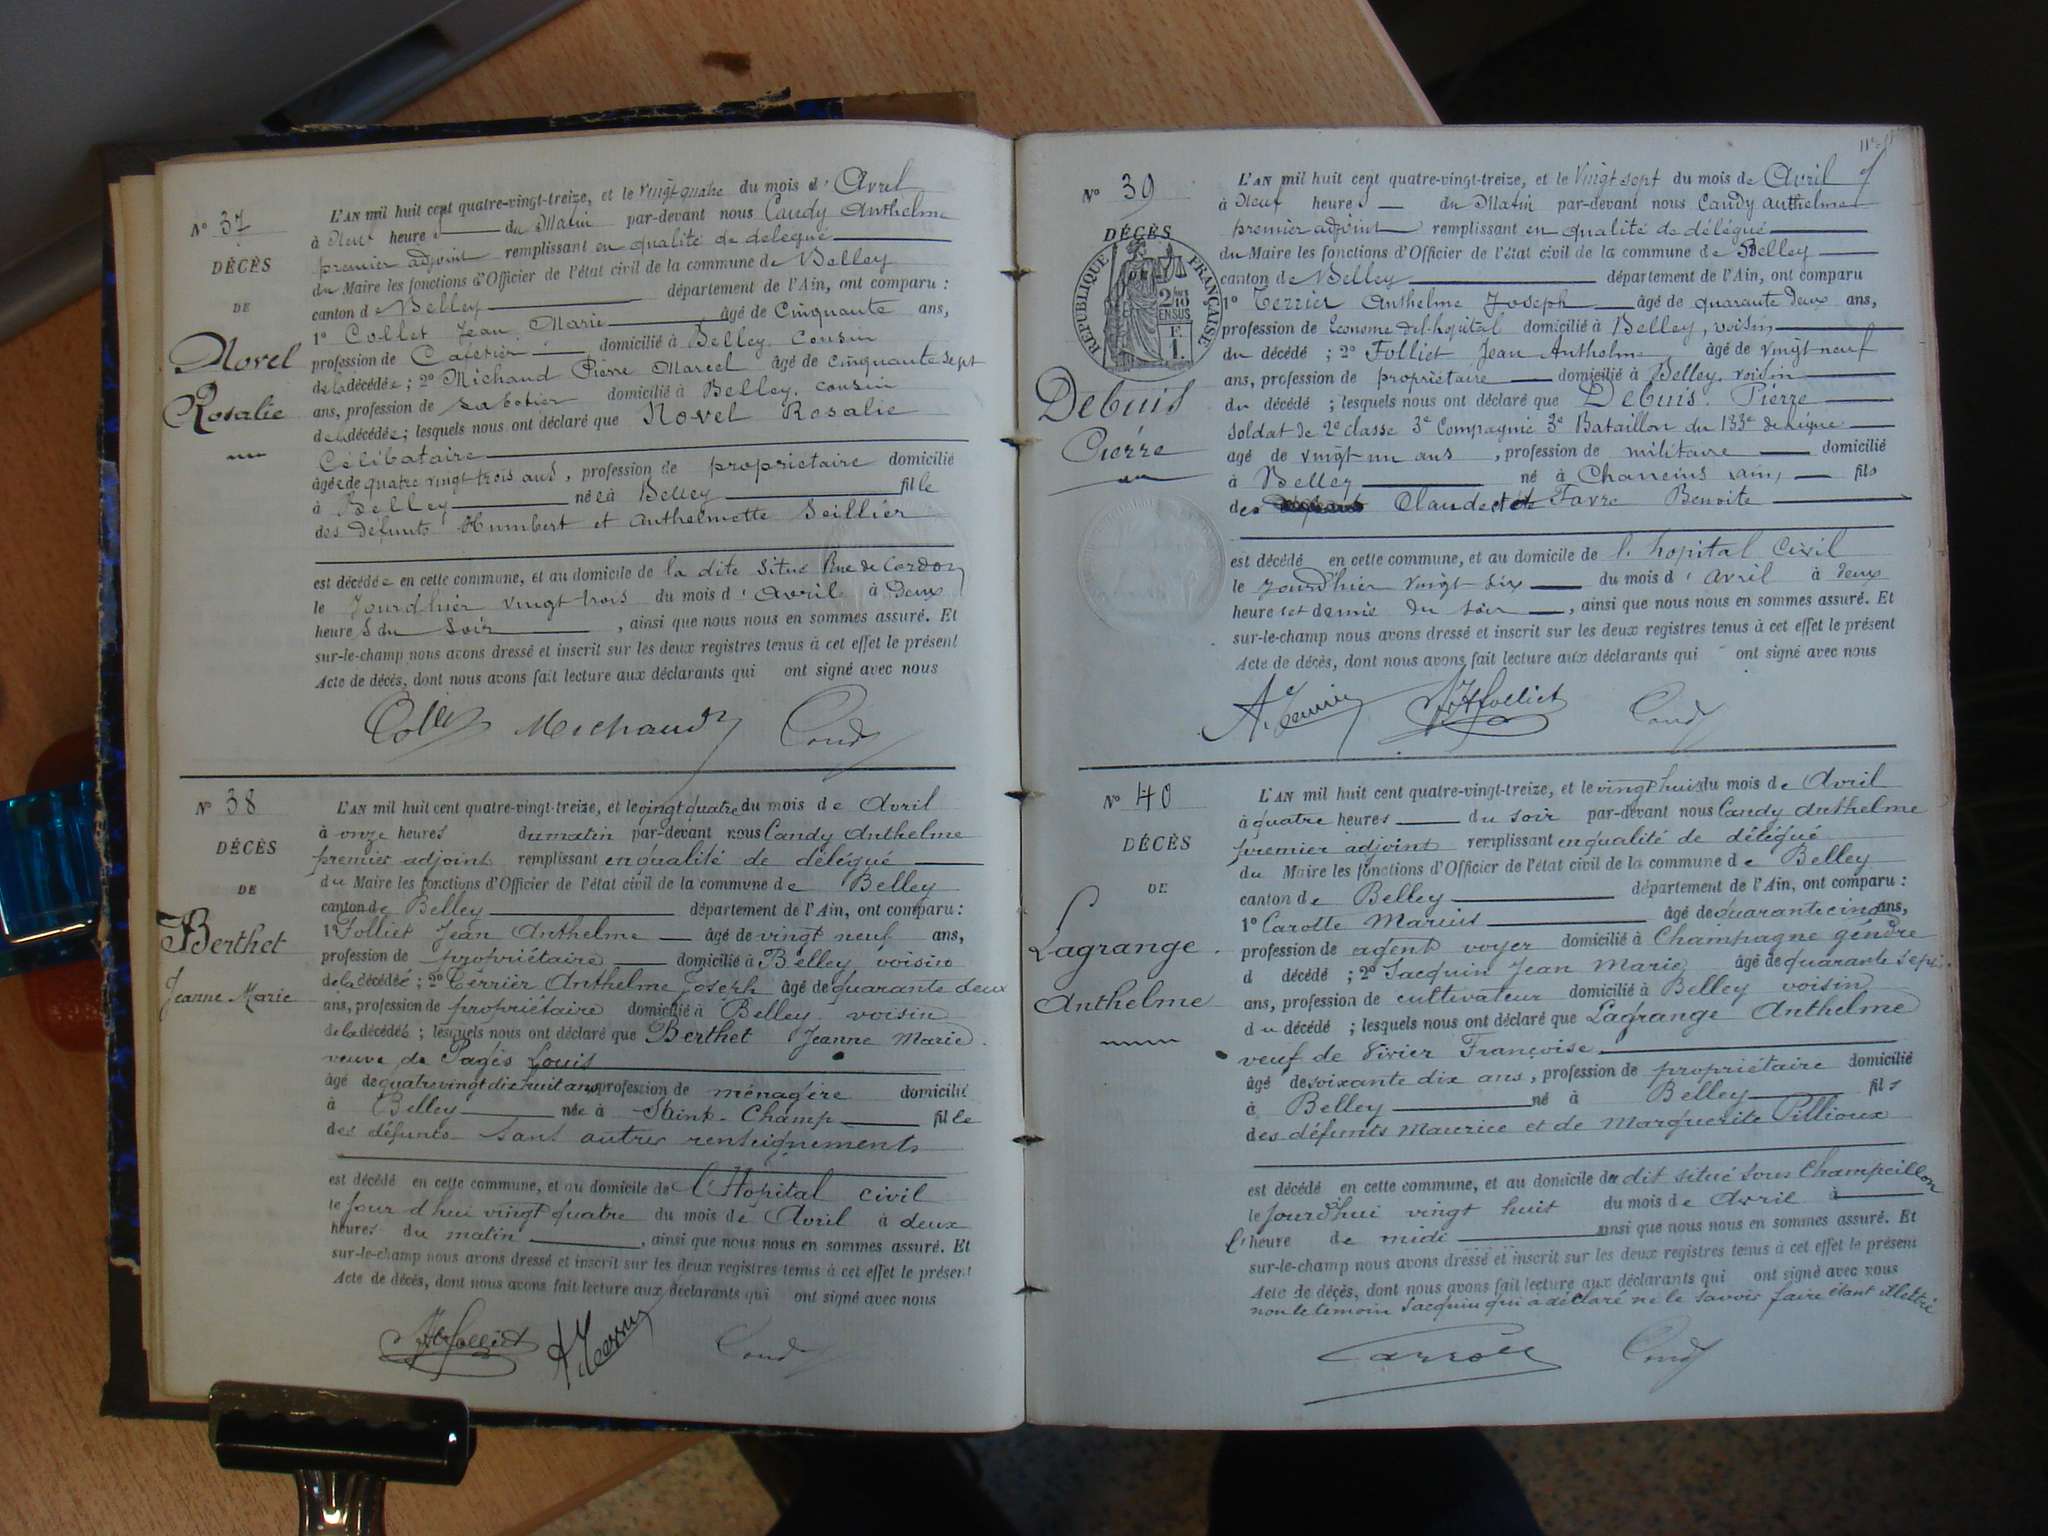 N° 37
DÉCÈS
DE
Novel
Rosalie
L'AN mil huit cent quatre-vingt-treize, et le vingt quatre du mois d'Avril
à Neuf heures du Matin par-devant nous Candy Anthelme
premier adjoint remplissant en qualité de délégué
du Maire les fonctions d'Officier de l'état civil de la commune de Belley
canton de Belley département de l'Ain, ont comparu :
1° Collet Jean Marie âgé de Cinquante ans,
profession de Cafetier domicilié à Belley. Cousin
de la décédée ; 2° Michaud Pierre Marcel âgé de cinquante sept
ans, profession de Sabotier domicilié à Belley, cousin
de la décédée ; lesquels nous ont déclaré que Novel Rosalie
Célibataire
âgée de quatre vingt trois ans, profession de propriétaire domicilié
à Belley née à Belley fille
des défunts Humbert et Anthelmette Seillier
est décédée en cette commune, et au domicile de la dite Situé Rue de Cordon
le Jourd'hier vingt trois du mois d'Avril à Deux
heures du Soir, ainsi que nous nous en sommes assuré. Et
sur-le-champ nous avons dressé et inscrit sur les deux registres tenus à cet effet le présent
Acte de décès, dont nous avons fait lecture aux déclarants qui ont signé avec nous
Collet Michaud Candy
N° 38
DÉCÈS
DE
Berthet
Jeanne Marie
L'AN mil huit cent quatre-vingt-treize, et le vingt quatre du mois de Avril
à onze heures du matin par-devant nous Candy Anthelme
premier adjoint remplissant en qualité de délégué
du Maire les fonctions d'Officier de l'état civil de la commune de Belley
canton de Belley département de l'Ain, ont comparu :
1° Folliet Jean Anthelme âgé de vingt neuf ans,
profession de propriétaire domicilié à Belley voisin
de la décédée ; 2° Terrier Anthelme Joseph âgé de quarante deux
ans, profession de propriétaire domicilié à Belley voisin
de la décédée ; lesquels nous ont déclaré que Berthet Jeanne Marie
veuve de Pagès Louis
âgé de quatre vingt dix huit ans, profession de ménagère domicilié
à Belley née à Saint-Champ fille
des défunts sans autres renseignements
est décédé en cette commune, et au domicile de l'Hopital civil
le jour d'hui vingt quatre du mois de Avril à deux
heures du matin, ainsi que nous nous en sommes assuré. Et
sur-le-champ nous avons dressé et inscrit sur les deux registres tenus à cet effet le présent
Acte de décès, dont nous avons fait lecture aux déclarants qui ont signé avec nous
JA Folliet A. Terrier Candy
N° 39
DÉCÈS
DE
RÉPUBLIQUE FRANÇAISE
2/10 EN SUS
F 1.
Debuis
Pierre
L'AN mil huit cent quatre-vingt-treize, et le Vingt sept du mois de Avril
à Neuf heures du Matin par-devant nous Candy Anthelme
premier adjoint remplissant en qualité de délégué
du Maire les fonctions d'Officier de l'état civil de la commune de Belley
canton de Belley département de l'Ain, ont comparu
1° Terrier Anthelme Joseph âgé de quarante deux ans,
profession de Econome de l'hopital domicilié à Belley, voisin
du décédé ; 2° Folliet Jean Anthelme âgé de vingt neuf
ans, profession de propriétaire domicilié à Belley. voisin
du décédé ; lesquels nous ont déclaré que Debuis. Pierre
Soldat de 2e classe 3e Compagnie 3e Bataillon du 133e de Ligne
âgé de vingt un ans, profession de militaire domicilié
à Belley né à Chaneins (ain) fils
des Claude et de Favre Benoite
est décédé en cette commune, et au domicile de l'hopital Civil
le Jourd'hier vingt six du mois d'Avril à deux
heures et demie du soir, ainsi que nous nous en sommes assuré. Et
sur-le-champ nous avons dressé et inscrit sur les deux registres tenus à cet effet le présent
Acte de décès, dont nous avons fait lecture aux déclarants qui ont signé avec nous
A. Terrier JA Folliet Candy
N° 40
DÉCÈS
DE
Lagrange
Anthelme
L'AN mil huit cent quatre-vingt-treize, et le vingt huit du mois de Avril
à quatre heures du soir par-devant nous Candy Anthelme
premier adjoint remplissant en qualité de délégué
du Maire les fonctions d'Officier de l'état civil de la commune de Belley
canton de Belley département de l'Ain, ont comparu :
1° Carotte Marius âgé de quarante cinq ans,
profession de agent voyer domicilié à Champagne gendre
d décédé ; 2° Jacquin Jean Marie âgé de quarante sept
ans, profession de cultivateur domicilié à Belley voisin
du décédé ; lesquels nous ont déclaré que Lagrange Anthelme
veuf de Vivier Françoise
âgé de soixante dix ans, profession de propriétaire domicilié
à Belley né à Belley fils
des défunts Maurice et de Marguerite Pillioux
est décédé en cette commune, et au domicile du dit situé sous Champeillon
le jourd'hui vingt huit du mois de Avril à
l'heure de midi ainsi que nous nous en sommes assuré. Et
sur-le-champ nous avons dressé et inscrit sur les deux registres tenus à cet effet le présent
Acte de décès, dont nous avons fait lecture aux déclarants qui ont signé avec nous
non le témoin Jacquin qui a déclaré ne le savoir faire étant illettré
Carrotte Candy